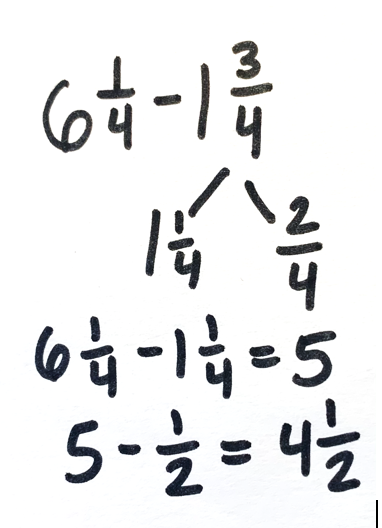 6 1/4 - 1 3/4
1 1/4 2/4
6 1/4 - 1 1/4 = 5
5 - 1/2 = 4 1/2